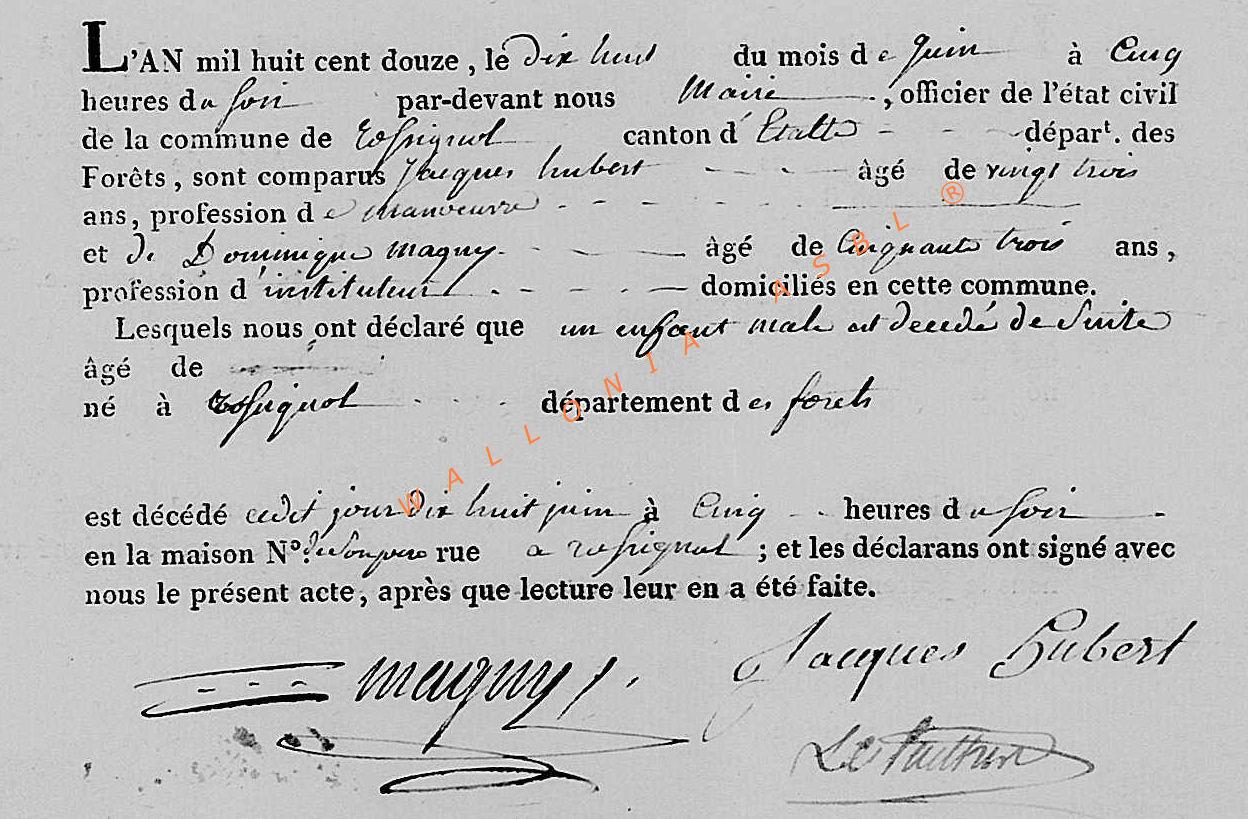 L'AN mil huit cent douze, le dix huit du mois de juin à Cinq
heures du soir par-devant nous Maire, officier de l'état civil
de la commune de Rossignol canton d'Etalle départ. des
Forêts, sont comparus Jacques hubert âgé de vingt trois
ans, profession de manoeuvre
et de Dominique Magny âgé de Cinquante trois ans,
profession d'instituteur domiciliés en cette commune.
Lesquels nous ont déclaré que un enfant male est decedé de Suite
âgé de
né à Rossignol département des forets
est décédé cedit jour dix huit juin à Cinq heures du soir
en la maison N°. de son pere rue a rossignol; et les déclarans ont signé avec
nous le présent acte, après que lecture leur en a été faite.
Magny
Jacques Hubert
WALLONIA ASBL ®